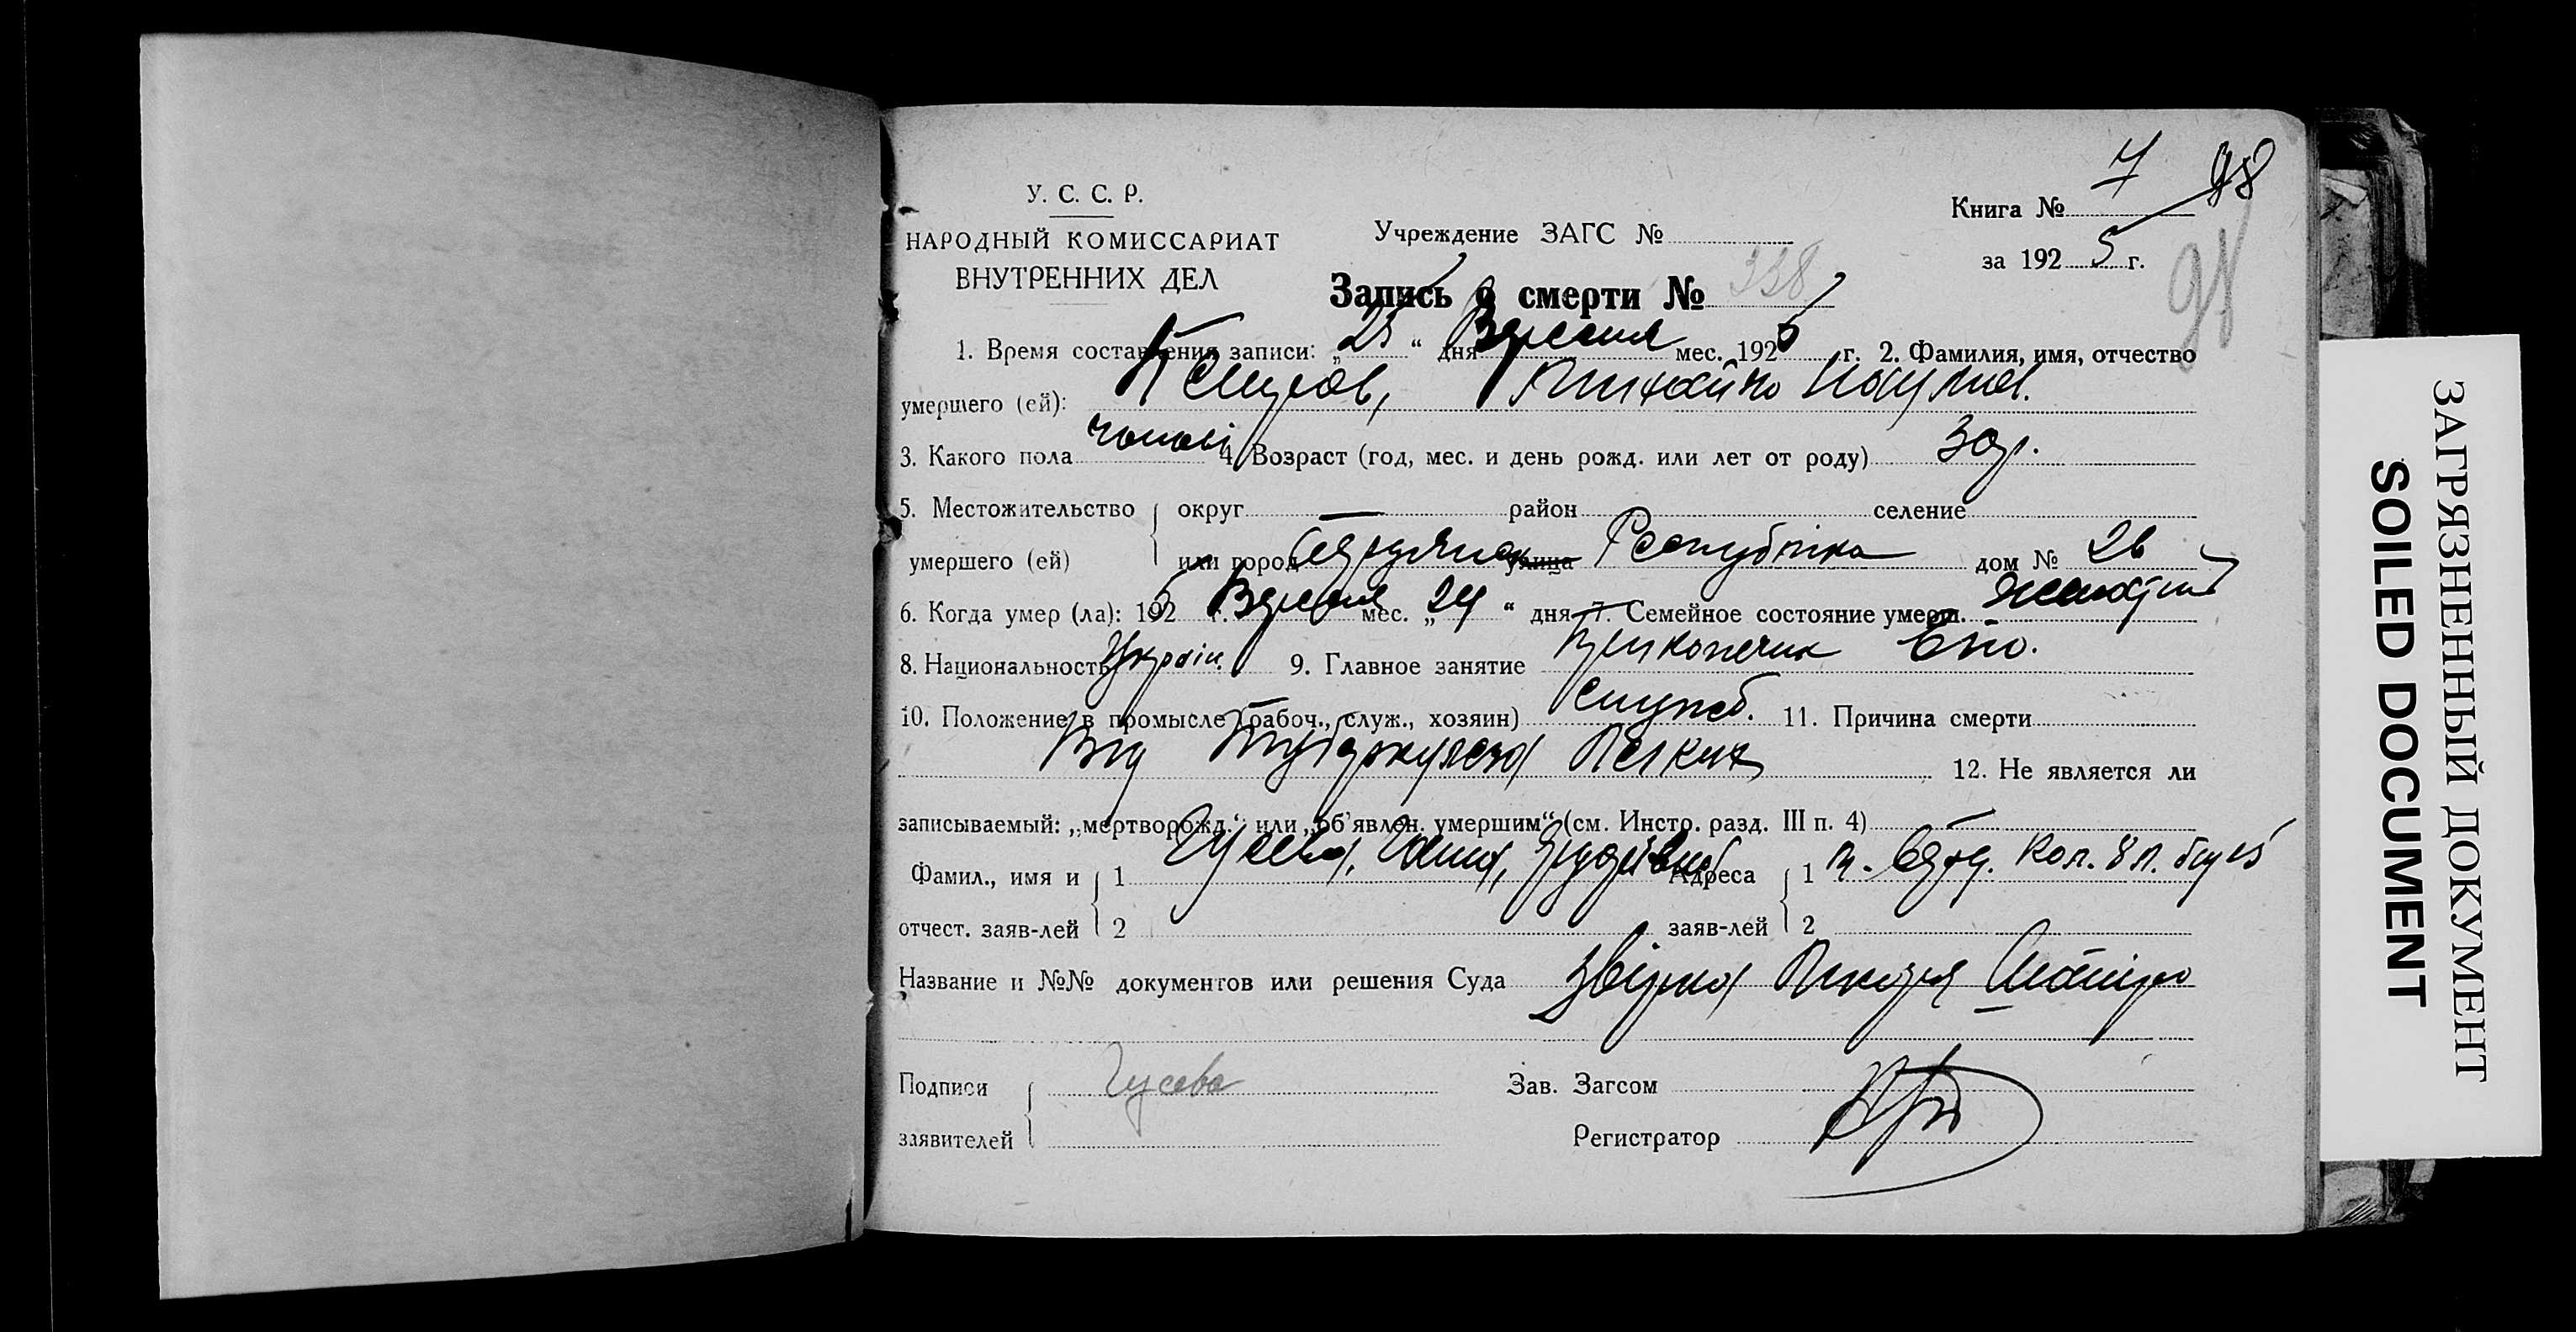 У. С. С. Р.
НАРОДНЫЙ КОМИССАРИАТ
ВНУТРЕННИХ ДЕЛ
Учреждение ЗАГС №
Книга № 7 98
за 1925 г.
98
Запись о смерти № 338
1. Время составления записи: „25“ дня Вересня мес. 1925 г. 2. Фамилия, имя, отчество
умершего (ей): Михайло Наумов.
3. Какого пола чолові 4. Возраст (год, мес. и день рожд. или лет от роду) 30 р.
5. Местожительство округ — район селение
умершего (ей) или город улица Республіка дом № 26
6. Когда умер (ла): 1925 г. Вересня мес. „24“ дня 7. Семейное состояние умерш. жонатий
8. Национальность Україн. 9. Главное занятие
10. Положение в промысле (рабоч., служ., хозяин) служб. 11. Причина смерти
Від Туберкульоза Легких 12. Не является ли
записываемый: „мертворожд.“ или „об'явлен. умершим“ (см. Инстр. разд. III п. 4) —
Фамил., имя и 1 Гусева, Ганна, Адреса 1
отчест. заяв-лей 2 заяв-лей 2
Название и №№ документов или решения Суда Звідка Лікаря
Подписи Гусева Зав. Загсом
заявителей Регистратор
ЗАГРЯЗНЕННЫЙ ДОКУМЕНТ
SOILED DOCUMENT